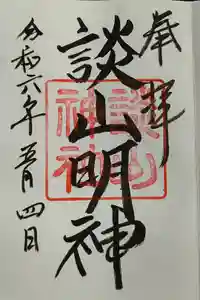 奉拝
談山明神
談山神社
令和六年五月四日